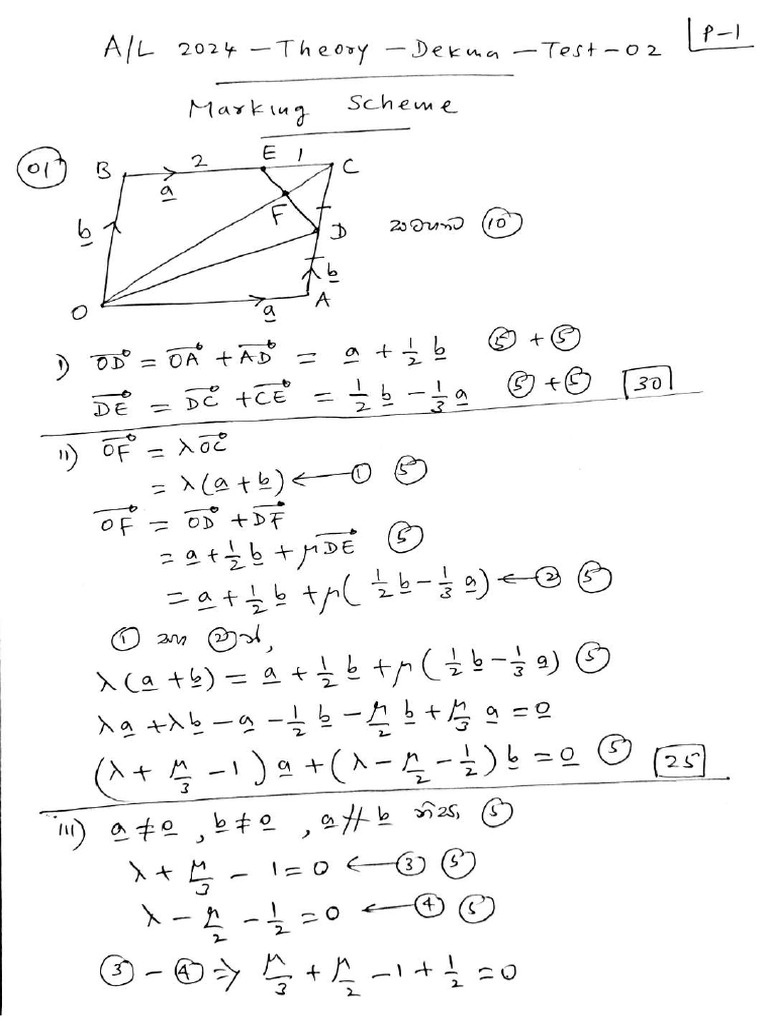 A/L 2024 – Theory – Dekma – Test – 02
P-1
Marking Scheme
01
B 2 E 1 C
a
b
F
D
රූපයට ⑩
b
O a A
i) OD→ = OA→ + AD→ = a + ½ b ⑤ + ⑤
DE→ = DC→ + CE→ = ½ b – ⅓ a ⑤ + ⑤ 30
ii) OF→ = λ OC→
= λ(a + b) ← ① ⑤
OF→ = OD→ + DF→
= a + ½ b + μ DE→ ⑤
= a + ½ b + μ( ½ b – ⅓ a) ← ② ⑤
① සහ ② න්,
λ(a + b) = a + ½ b + μ( ½ b – ⅓ a) ⑤
λa + λb – a – ½ b – μ/2 b + μ/3 a = 0
(λ + μ/3 – 1) a + (λ – μ/2 – ½) b = 0 ⑤ 25
iii) a ≠ 0 , b ≠ 0 , a ∦ b ⑤
λ + μ/3 – 1 = 0 ← ③ ⑤
λ – μ/2 – ½ = 0 ← ④ ⑤
③ – ④ ⇒ μ/3 + μ/2 – 1 + ½ = 0